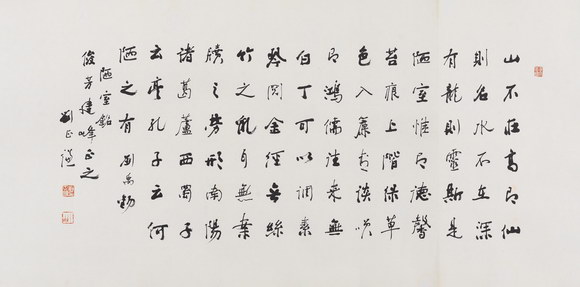 山不在高有仙
則名水不在深
有龍則靈斯是
陋室惟吾德馨
苔痕上階綠草
色入簾青談笑
有鴻儒往來無
白丁可以調素
琴閱金經無絲
竹之亂耳無案
牘之勞形南陽
諸葛廬西蜀子
云亭孔子云何
陋之有 劉禹錫
陋室銘
俊芳健峰正之
劉正